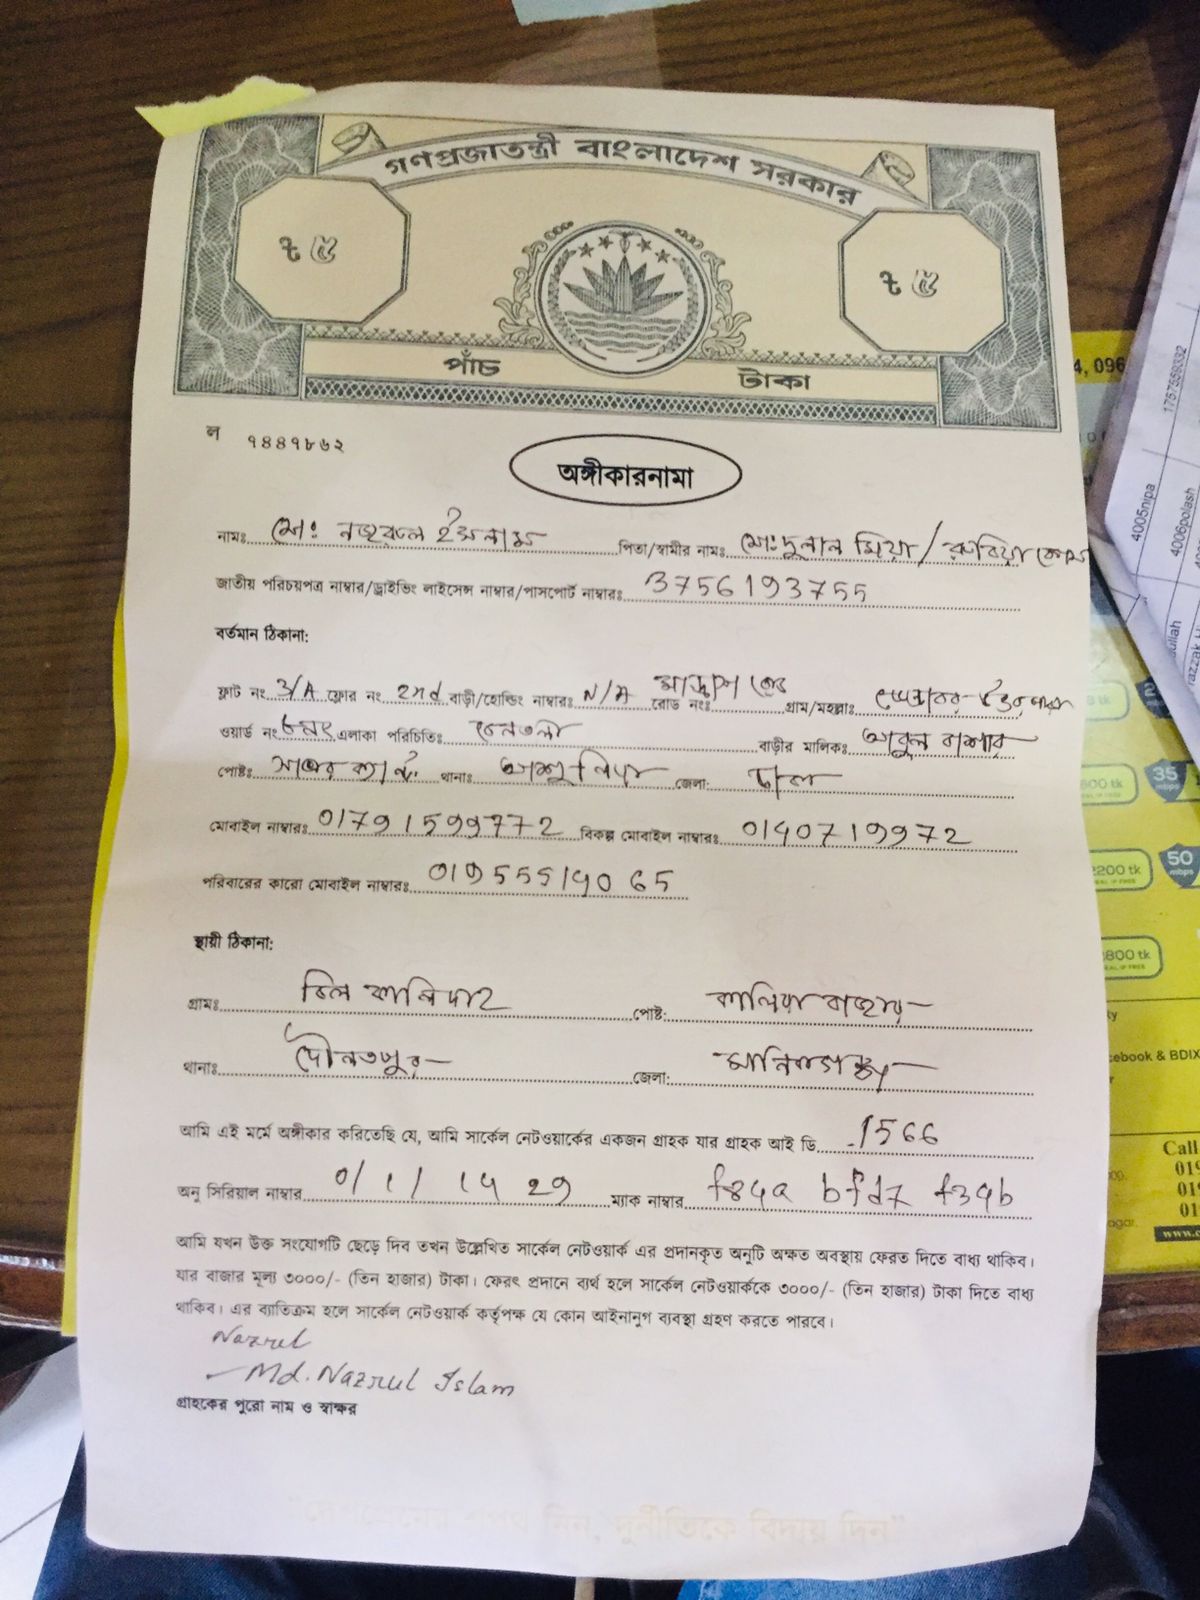 গণপ্রজাতন্ত্রী বাংলাদেশ সরকার
৳ ৫
৳ ৫
পাঁচ টাকা
ল ৭৪৪৭৮৬২
অঙ্গীকারনামা
নামঃ মোঃ নজরুল ইসলাম পিতা/স্বামীর নামঃ মোঃ দুলাল মিয়া/ রুবিয়া বেগম
জাতীয় পরিচয়পত্র নাম্বার/ড্রাইভিং লাইসেন্স নাম্বার/পাসপোর্ট নাম্বারঃ 3756193755
বর্তমান ঠিকানা:
ফ্লাট নং 3/A ফ্লোর নং 2nd বাড়ী/হোল্ডিং নাম্বারঃ N/A রোড নংঃ গ্রাম/মহল্লাঃ
ওয়ার্ড নং ৮নং এলাকা পরিচিতিঃ বেলতলী বাড়ীর মালিকঃ আবুল বাশার
পোষ্টঃ সাভার ক্যান্ট: থানাঃ আশুলিয়া জেলা: ঢাকা
মোবাইল নাম্বারঃ 01791599772 বিকল্প মোবাইল নাম্বারঃ 0140719972
পরিবারের কারো মোবাইল নাম্বারঃ
স্থায়ী ঠিকানা:
গ্রামঃ পোষ্ট:
থানাঃ দৌলতপুর জেলা: মানিকগঞ্জ
আমি এই মর্মে অঙ্গীকার করিতেছি যে, আমি সার্কেল নেটওয়ার্কের একজন গ্রাহক যার গ্রাহক আই ডি 1566
অনু সিরিয়াল নাম্বার 0/1/ ম্যাক নাম্বার
আমি যখন উক্ত সংযোগটি ছেড়ে দিব তখন উল্লেখিত সার্কেল নেটওয়ার্ক এর প্রদানকৃত অনুটি অক্ষত অবস্থায় ফেরত দিতে বাধ্য থাকিব।
যার বাজার মূল্য ৩০০০/- (তিন হাজার) টাকা। ফেরৎ প্রদানে ব্যর্থ হলে সার্কেল নেটওয়ার্ককে ৩০০০/- (তিন হাজার) টাকা দিতে বাধ্য
থাকিব। এর ব্যাতিক্রম হলে সার্কেল নেটওয়ার্ক কর্তৃপক্ষ যে কোন আইনানুগ ব্যবস্থা গ্রহণ করতে পারবে।
Nazrul
Md. Nazrul Islam
গ্রাহকের পুরো নাম ও স্বাক্ষর
নিন, দুর্নীতিকে বিদায় দিন"
4, 096
1757559332
4005nipa
4006polash
35 mbps
50 mbps
2200 tk
800 tk
ebook & BDIX
Call